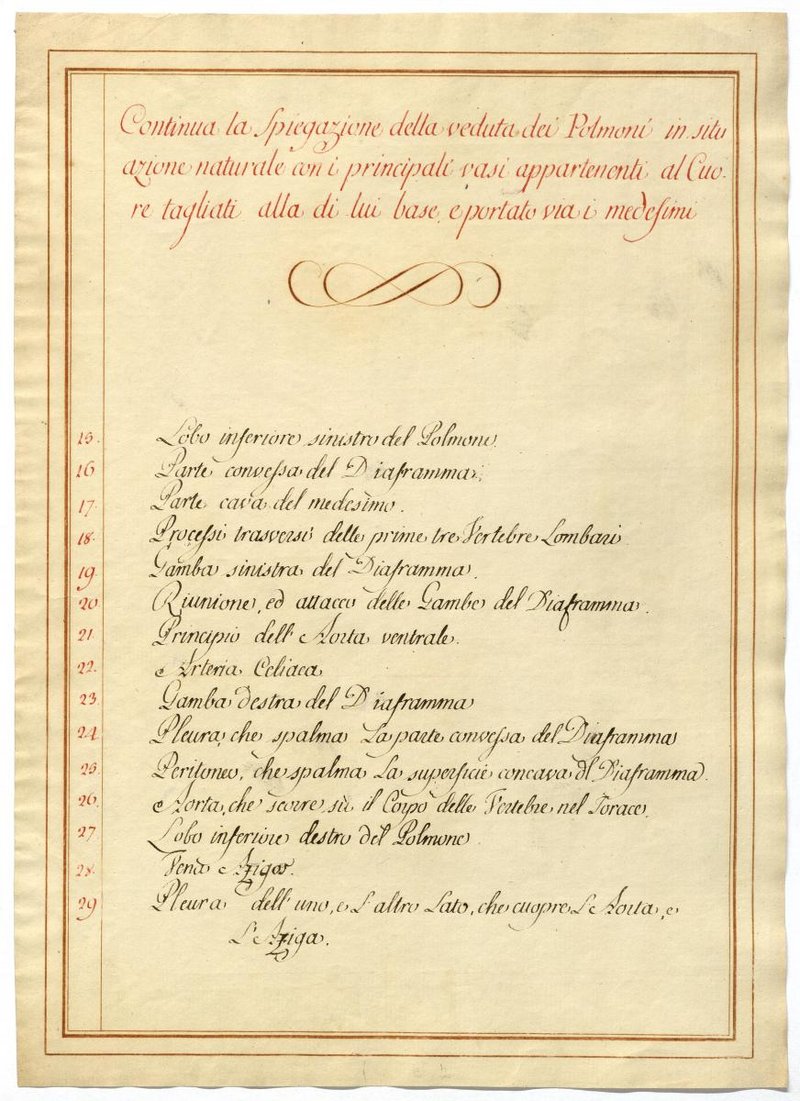 Continua la Spiegazione della veduta dei Polmoni in situ
azione naturale con i principali vasi appartenenti al Cuo-
re tagliati alla di lui base, e portato via i medesimi
15. Lobo inferiore sinistro del Polmone.
16 Parte convessa del Diaframma.
17. Parte cava del medesimo.
18. Processi trasversi delle prime tre Vertebre Lombari
19. Gamba sinistra del Diaframma.
20 Riunione, ed attacco delle Gambe del Diaframma.
21. Principio dell' Aorta ventrale.
22. Arteria Celiaca
23. Gamba destra del Diaframma
24. Pleura, che spalma La parte convessa del Diaframma
25 Peritoneo, che spalma La superficie concava dl Diaframma.
26. Aorta, che scorre sù il Corpo delle Vertebre nel Torace.
27. Lobo inferiore destro del Polmone
28. Vena Azigos.
29 Pleura dell' uno, e L' altro Lato, che cuopre L'Aorta, e
L'Aziga.